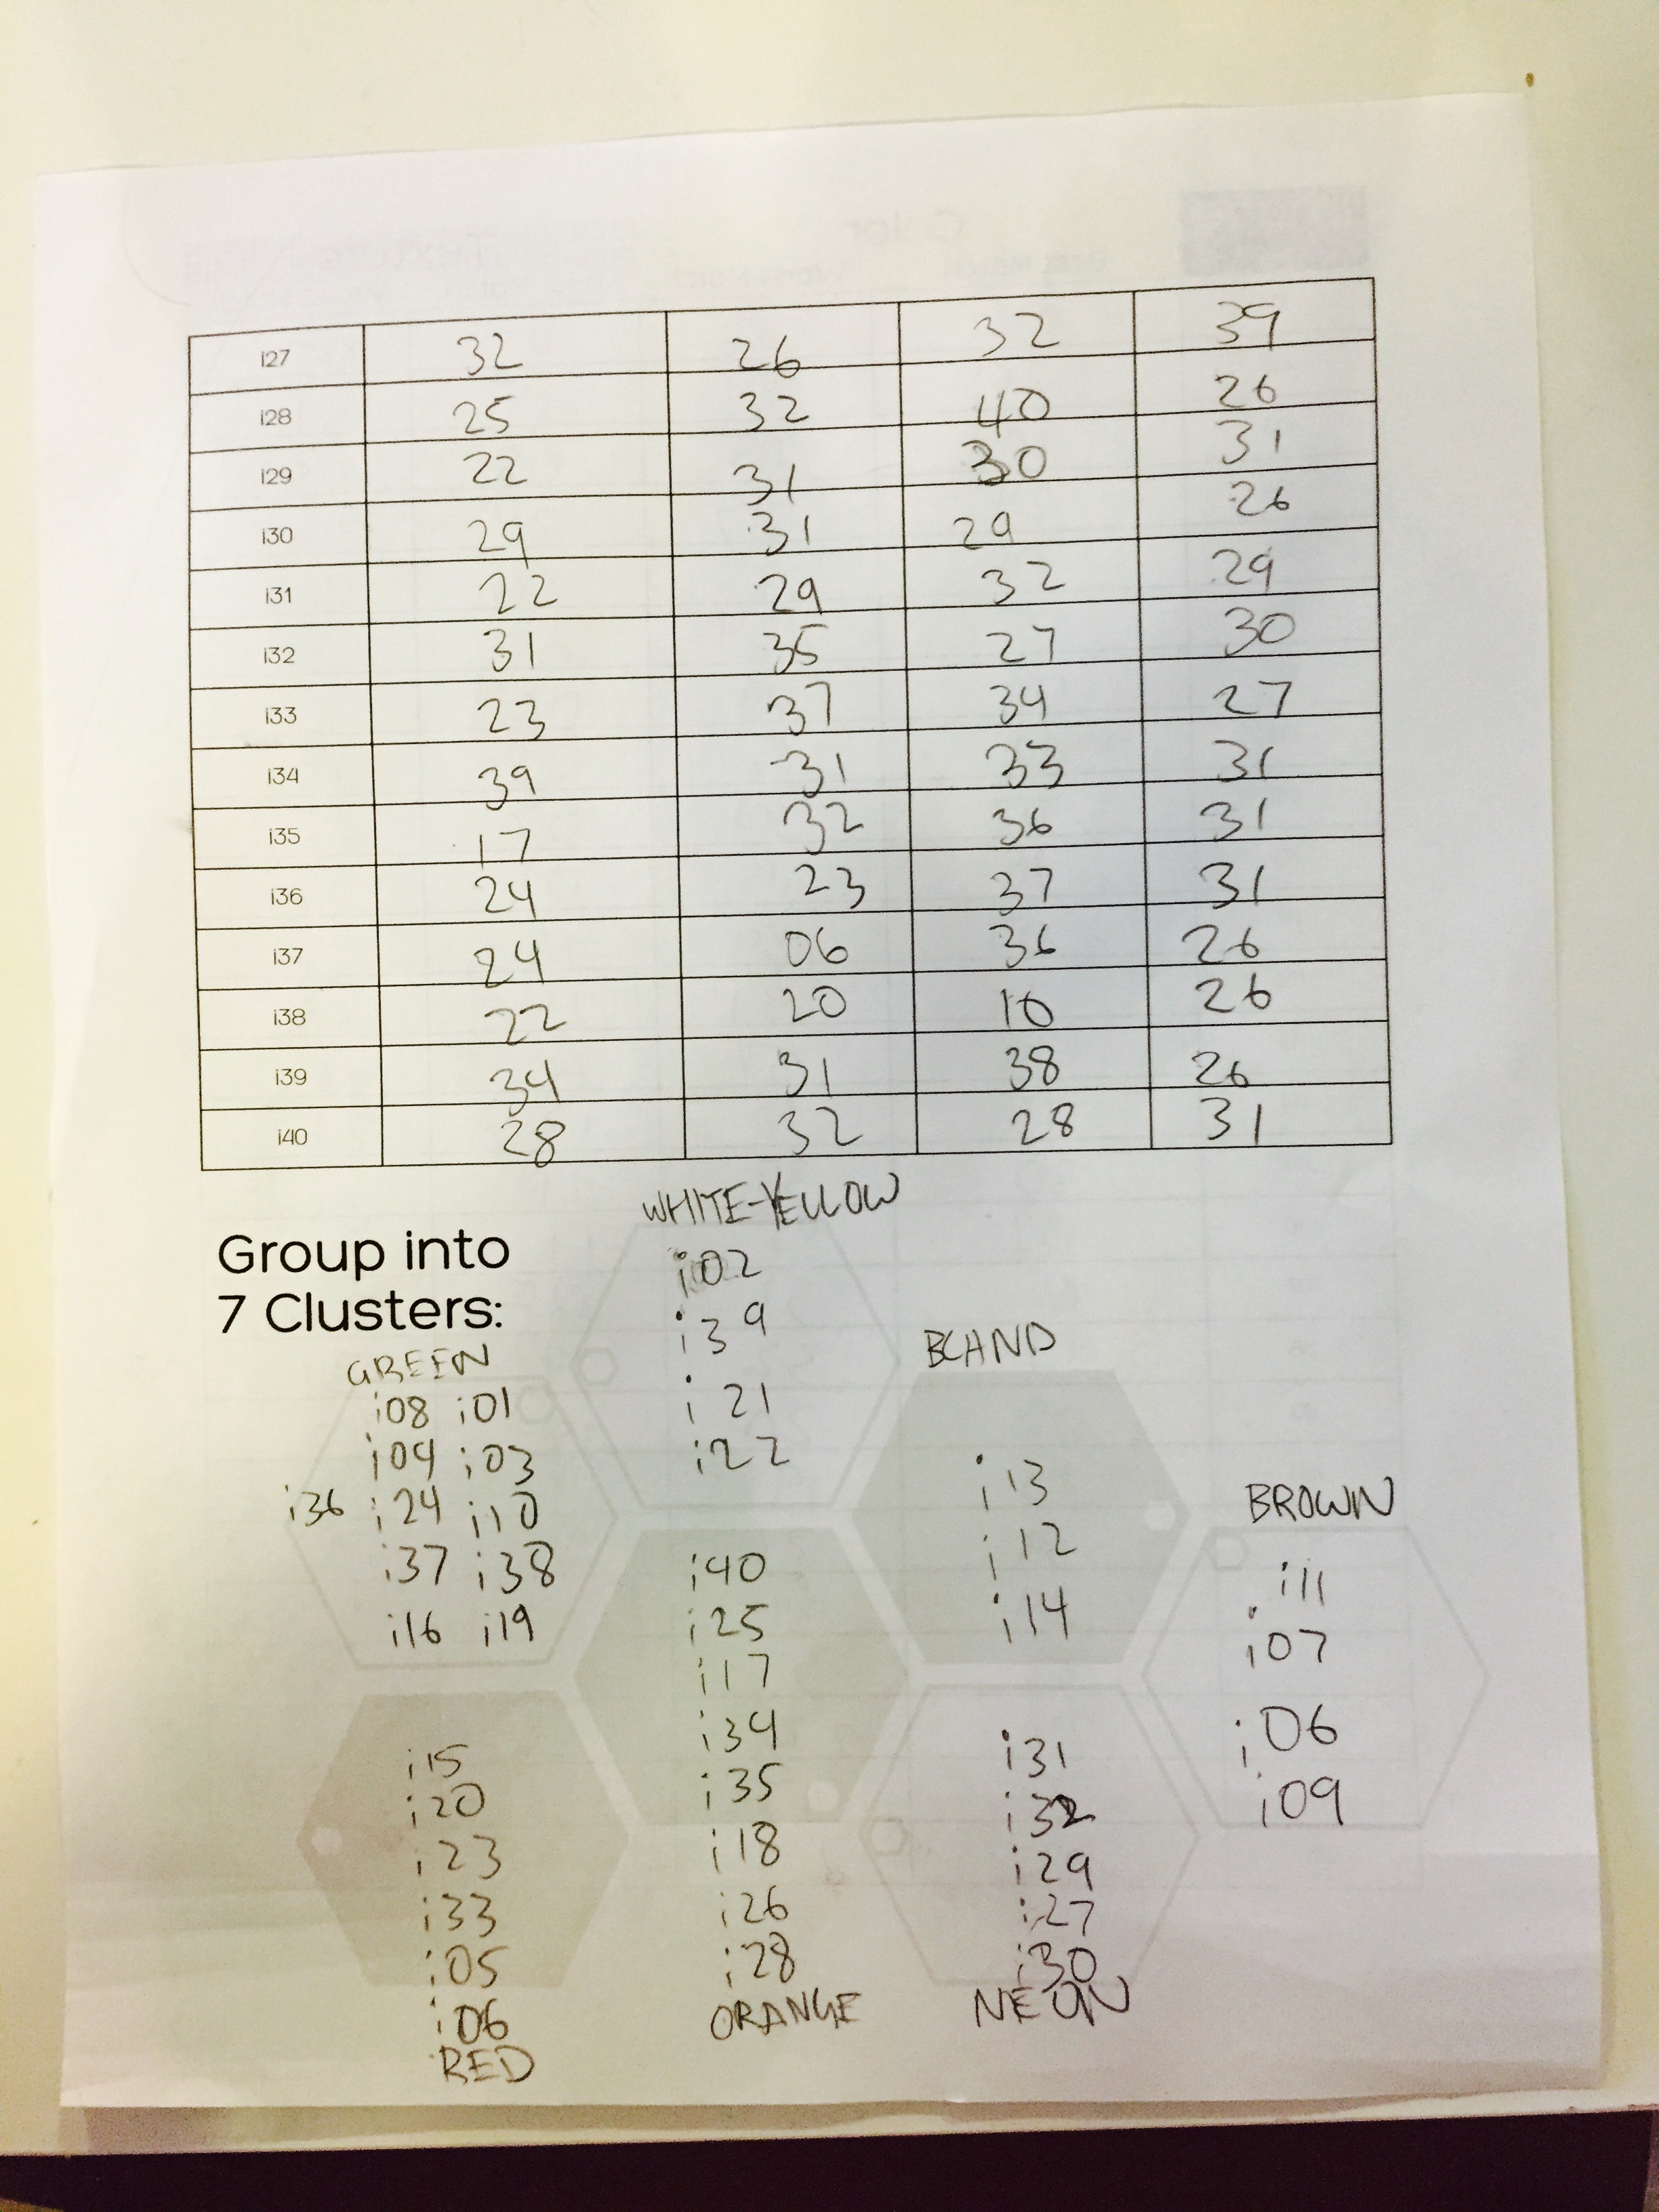 i27 32 26 32 39
i28 25 32 40 26
i29 22 31 30 31
i30 29 31 29 26
i31 22 29 32 29
i32 31 35 27 30
i33 23 37 34 27
i34 39 31 33 31
i35 17 32 36 31
i36 24 23 37 31
i37 24 06 36 26
i38 22 20 10 26
i39 34 31 38 26
i40 28 32 28 31
Group into
7 Clusters:
GREEN
i08 i01
i04 i03
i36 i24 i10
i37 i38
i16 i19
WHITE-YELLOW
i02
i39
i21
i22
BLAND
i13
i12
i14
BROWN
i11
i07
i06
i09
i15
i20
i23
i33
i05
i06
RED
i40
i25
i17
i34
i35
i18
i26
i28
ORANGE
i31
i32
i29
i27
i30
NEON